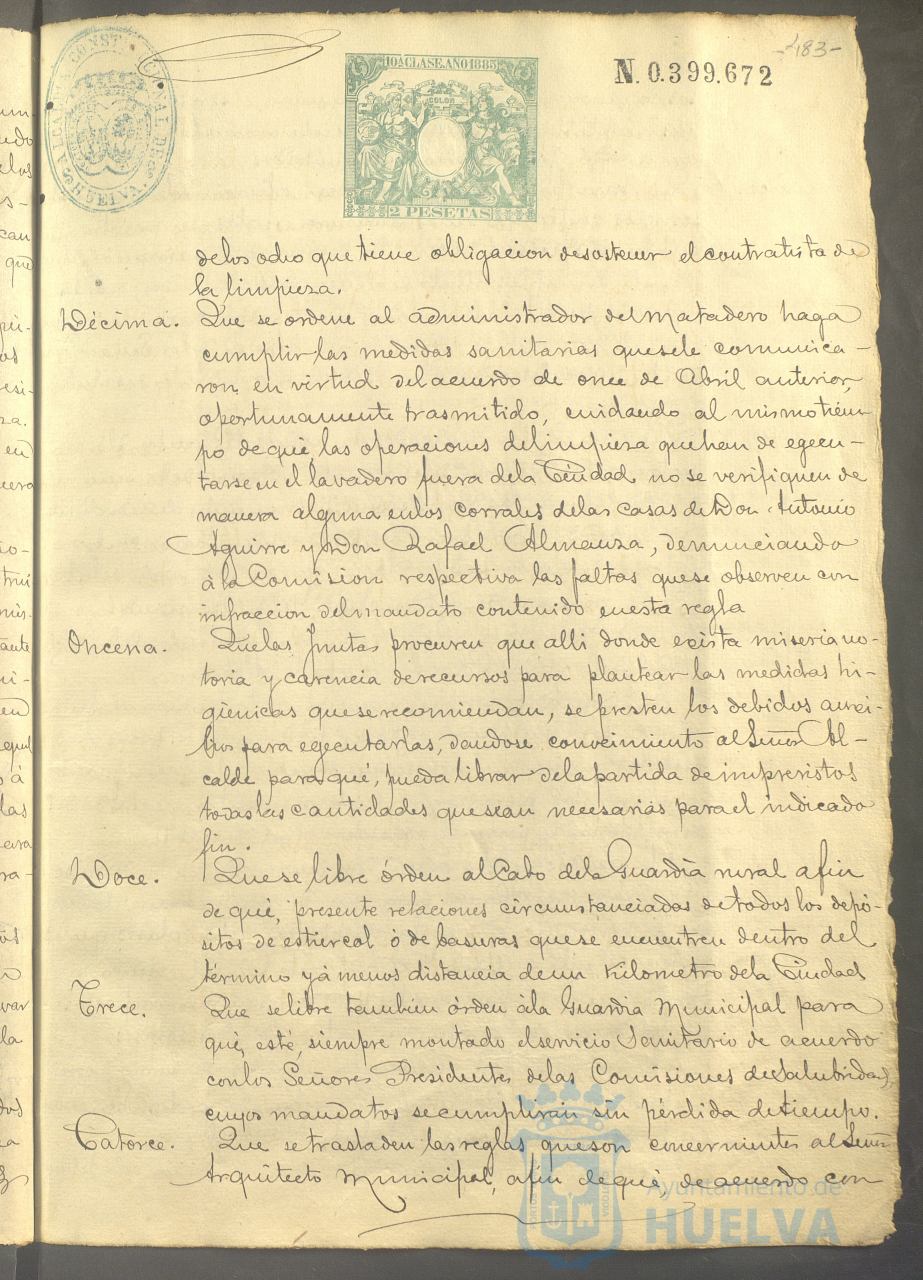 -483-
ALCALDIA CONSTITUCIONAL DE HUELVA
10ª CLASE. AÑO 1885
COLON
2 PESETAS
N. 0.399.672
delos ocho que tiene obligacion desostener el contratista de
la limpieza.
Décima. Que se ordene al administrador del Matadero haga
cumplir las medidas sanitarias quesele comunica-
ron en virtud del acuerdo de once de Abril anterior,
oportunamente trasmitido, cuidando al mismo tiem-
po de qué, las operaciones delimpieza quehan de egecu-
tarse en el lavadero fuera dela Ciudad no se verifiquen de
manera alguna enlos corrales delas casas de Don Antonio
Aguirre y Don Rafael Almanza, denunciando
á la Comision respectiva las faltas quese observen con
infraccion del mandato contenido enesta regla
Oncena. Quelas Juntas procuren que alli donde exista miseria no-
toria y carencia derecursos para plantear las medidas hi-
giénicas que serecomiendan, se presten los debidos auxi-
lios para egecutarlas, dandose conocimiento al Señor Al-
calde para qué, pueda librar dela partida de imprevistos
todas las cantidades que sean necesarias para el indicado
fin.
Doce. Quese libre órden al Cabo dela Guardia rural afin
de qué, presente relaciones circunstanciadas de todos los depó-
sitos de estiercol ó de basuras quese encuentren dentro del
término y á menos distancia deun Kilometro dela Ciudad
Trece. Que selibre tambien órden ála Guardia Municipal para
qué, esté, siempre montado elservicio Sanitario de acuerdo
conlos Señores Presidentes delas Comisiones de Salubridad,
cuyos mandatos secumplirán sin pérdida detiempo.
Catorce. Que setrasladen las reglas queson concernientes al Señor
Arquitecto Municipal, afin dequé, de acuerdo con
Ayuntamiento de
HUELVA